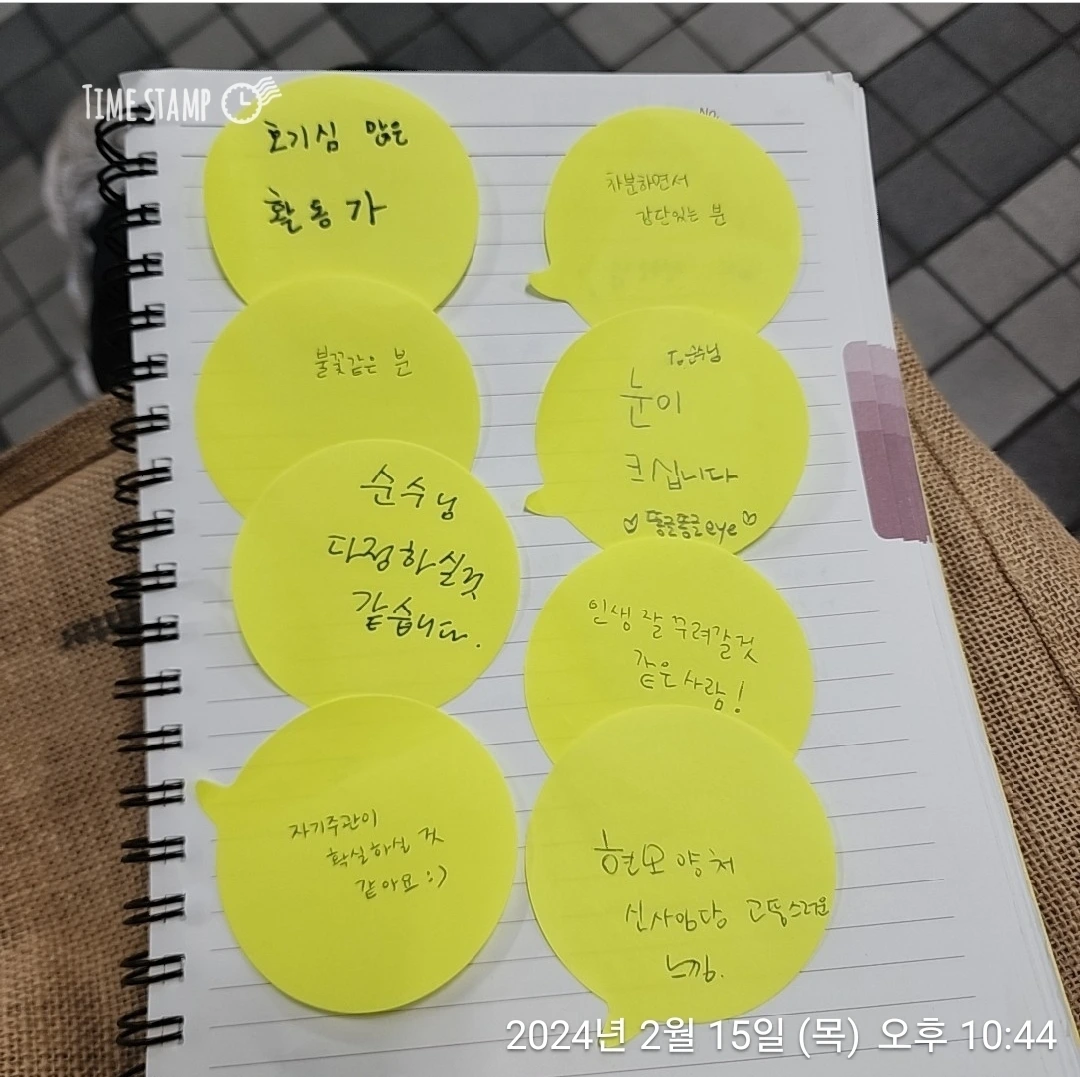 TIME STAMP
호기심 많은
활동가
불꽃같은 분
순수님
다정하실것
같습니다.
자기주관이
확실하실 것
같아요 :)
No.
차분하면서
강단있는 분
To 순수님
눈이
크십니다
♡ 똥글똥글 eye ♡
인생 잘 꾸려갈것
같은 사람!
현모양처
신사임당 고풍스러운
느낌.
2024년 2월 15일 (목) 오후 10:44